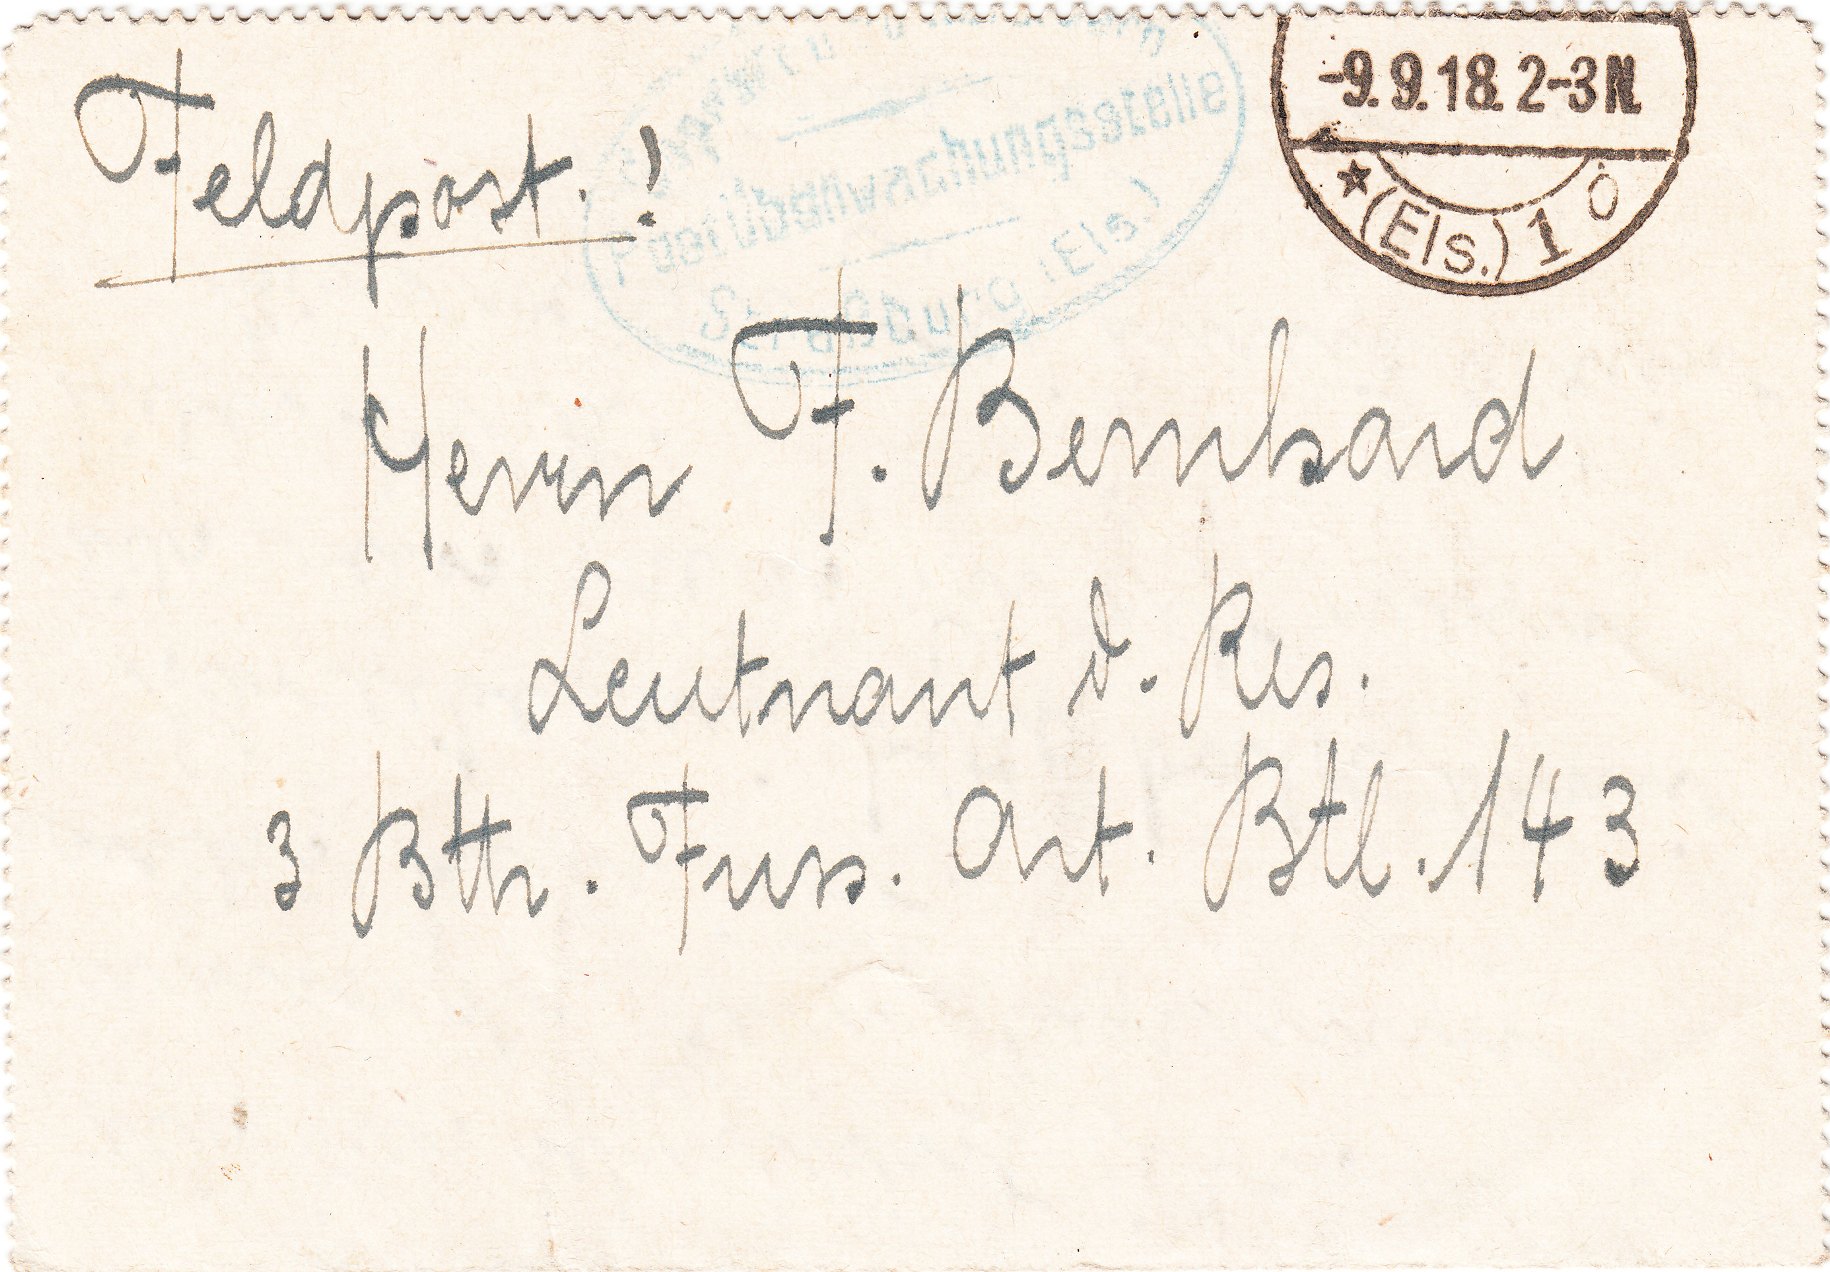 Feldpost.!
Postüberwachungsstelle
Straßburg (Els.)
-9.9.18. 2-3 N.
* (Els.) 1
Herrn F. Bernhard
Leutnant d. Res.
3 Bttr. Fuss. Art. Btl. 143